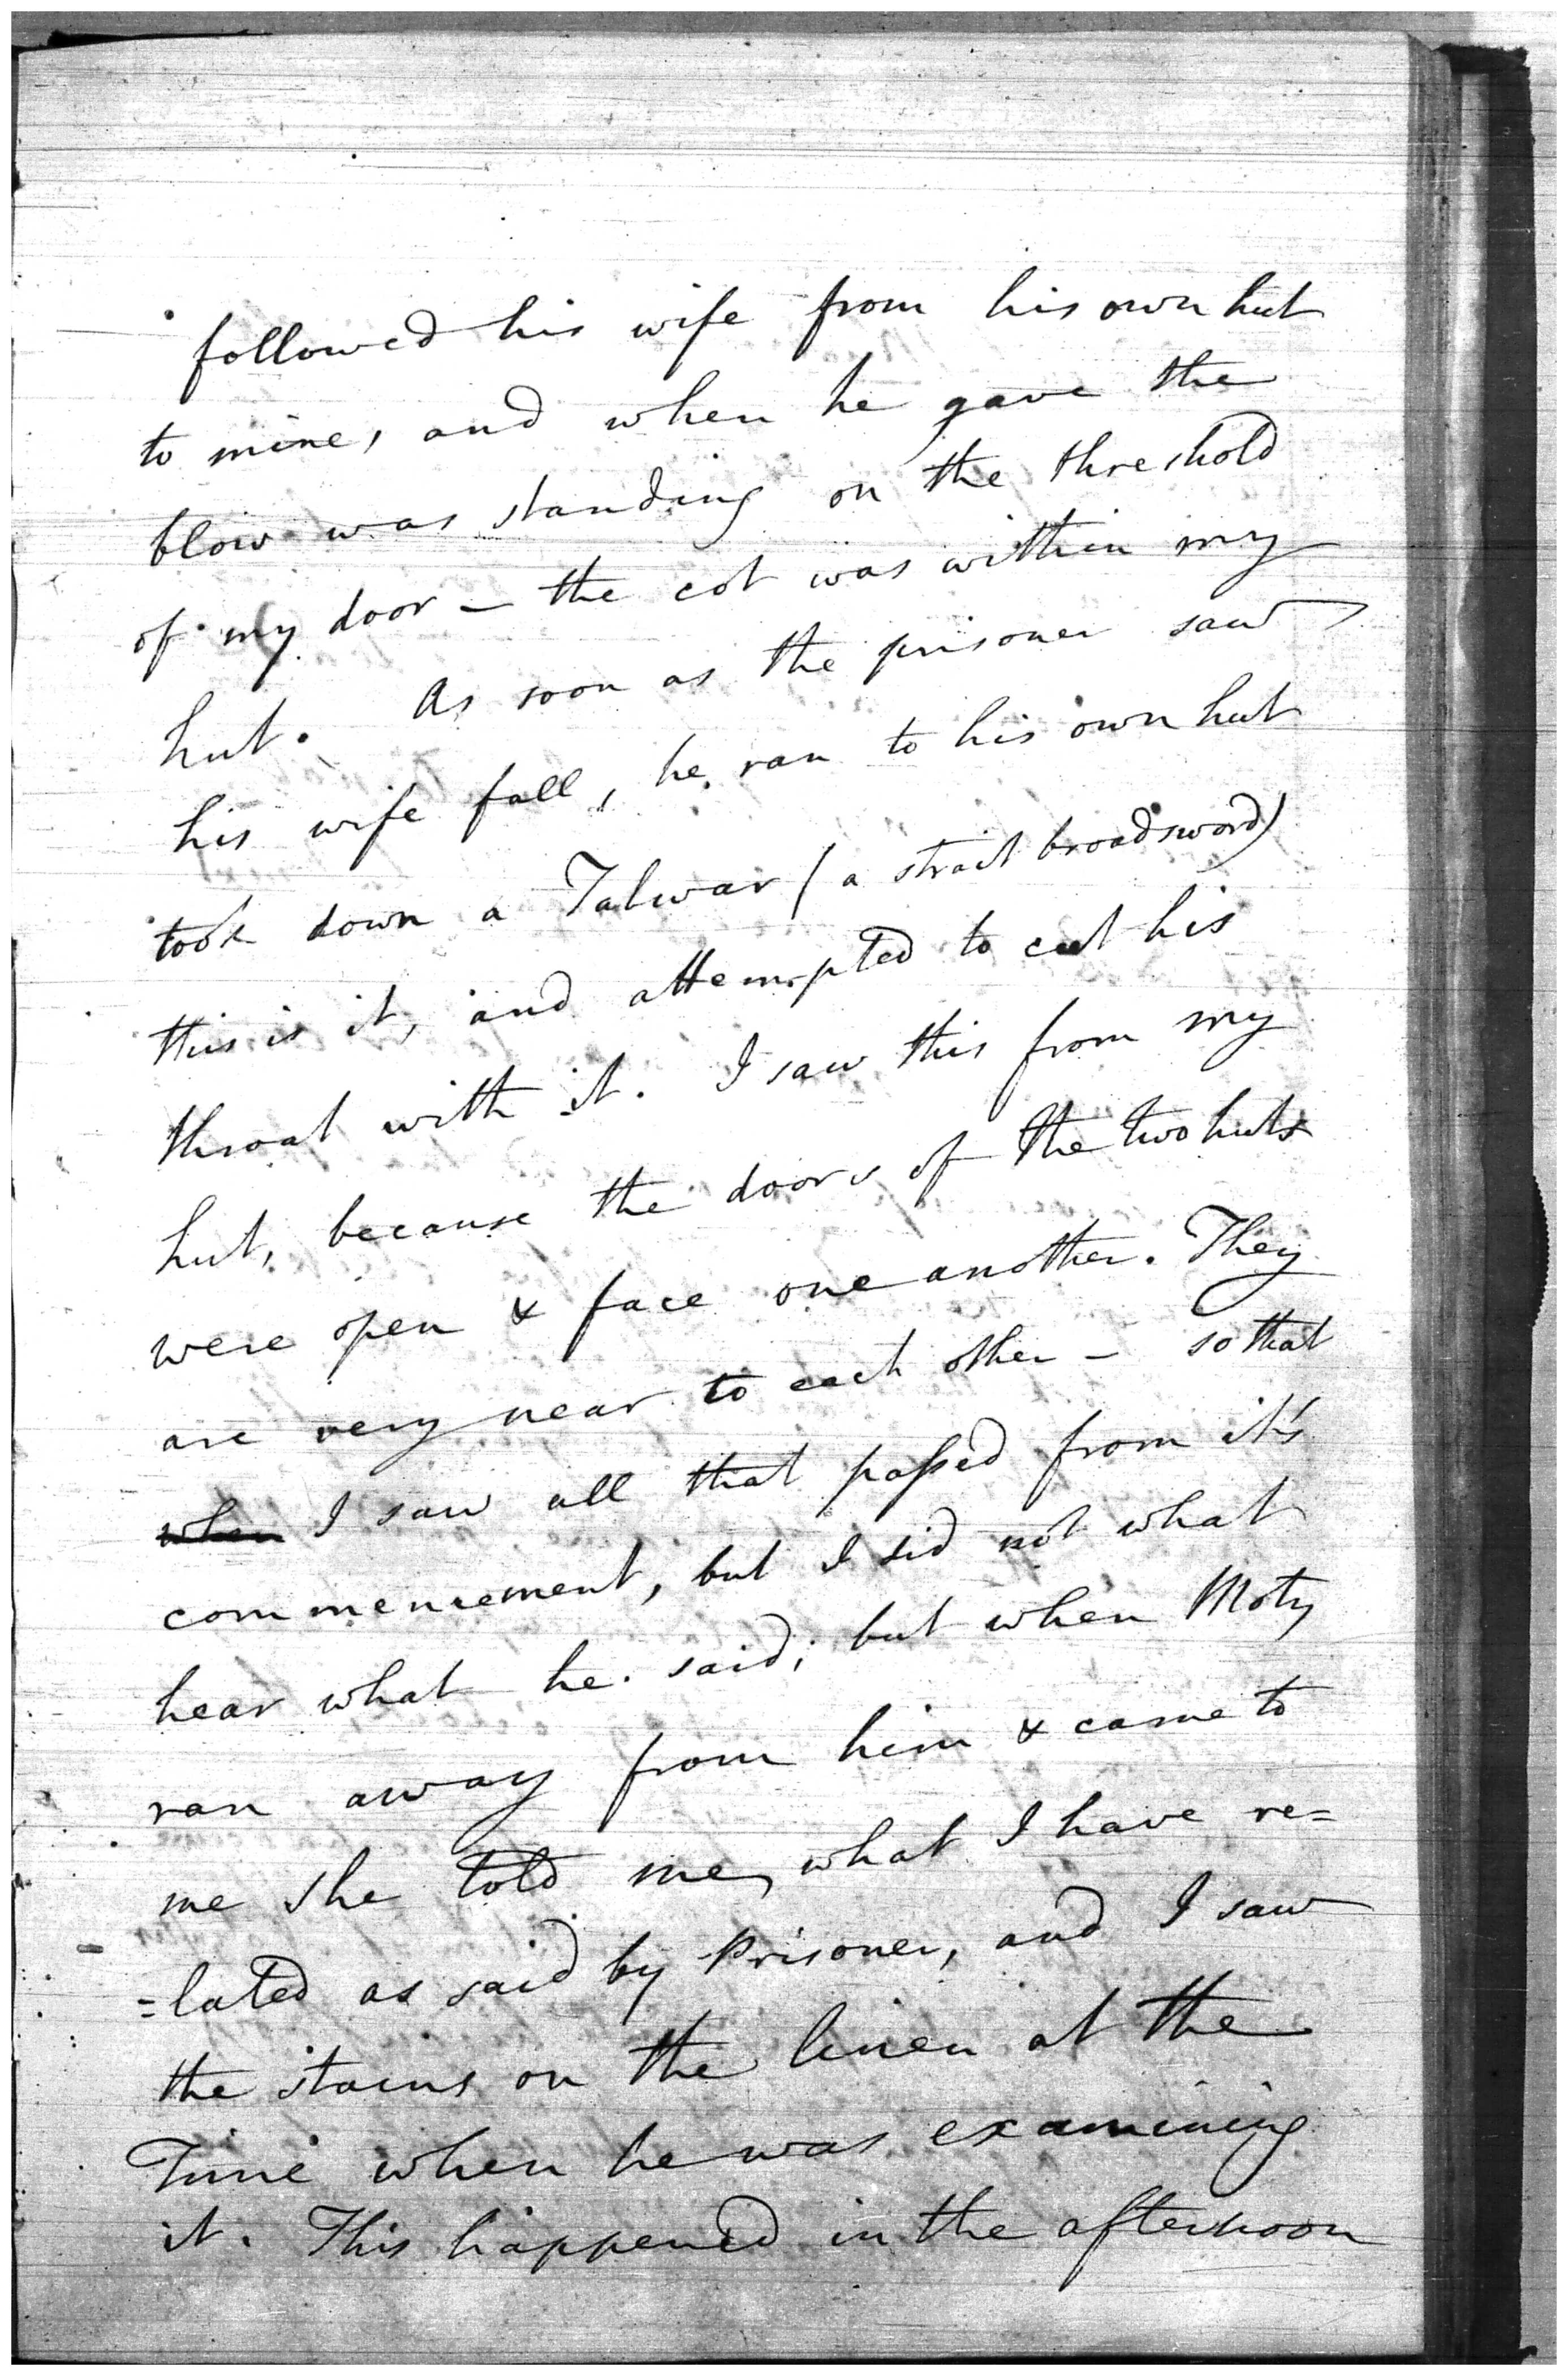 followed his wife from his own hut
to mine, and when he gave the
blow was standing on the threshold
of my door – the cot was within my
hut. As soon as the prisoner saw
his wife fall, he ran to his own hut
took down a Talwar (a strait broadsword)
this is it, and attempted to cut his
throat with it. I saw this from my
hut, because the doors of the two huts
were open & face one another. They
are very near to each other – so that
when I saw all that passed from it's
commencement, but I did not what
hear what he said; but when Moty
ran away from him & came to
me she told me, what I have re=
=lated as said by Prisoner, and I saw
the stains on the linen at the
Time when he was examining
it. This happened in the afternoon